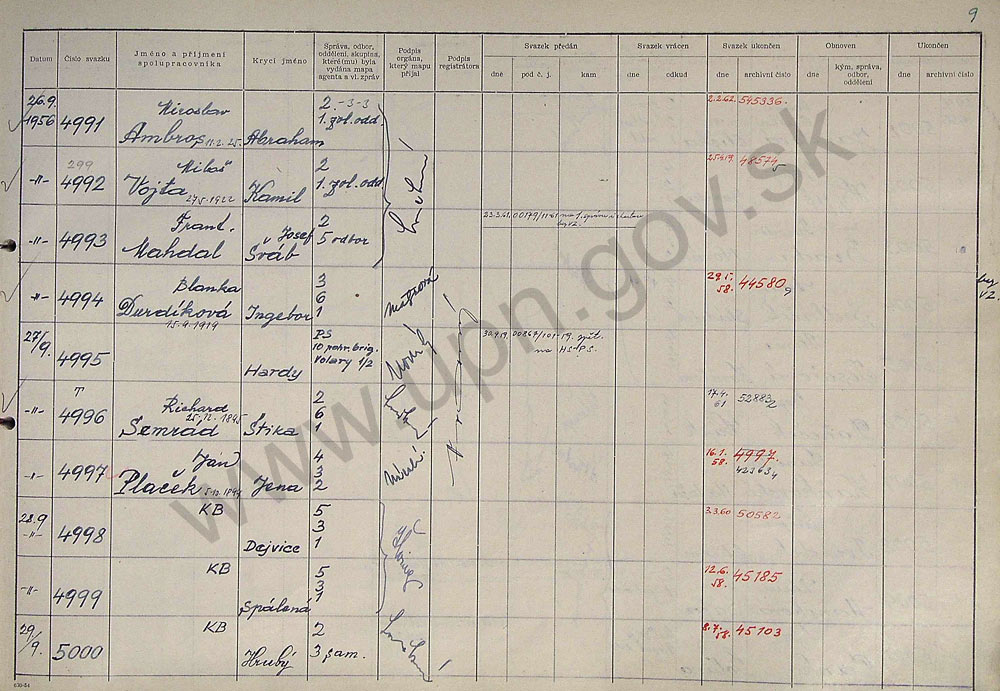 9
Datum
Číslo svazku
Jméno a příjmení spolupracovníka
Krycí jméno
Správa, odbor, oddělení, skupina, které(mu) byla vydána mapa agenta a vl. zpráv
Podpis orgána, který mapu přijal
Podpis registrátora
Svazek předán
dne
pod č. j.
kam
Svazek vrácen
dne
odkud
Svazek ukončen
dne
archivní číslo
Obnoven
dne
kým, správa, odbor, oddělení
Ukončen
dne
archivní číslo
26.9. 1956 4991 Miroslav Ambros 11.2.25. Abraham 2-3-3 1. zol. odd. 2.2.62. 545336.
-"- 299 4992 Miloš Vojta 27.5.1922 Kamil 2 1. zol. odd. 48574 5
-"- 4993 Frant. Mahdal Josef Šváb 2 5 odbor 23.3.61. 00179/11-61
-"- 4994 Blanka Durdíková 15.9.1919 Ingebor 3 6 1 58. 44580 9
27/9. 4995 Hardy PS 10 pohr. brig. Volary 1/2 00867/101-19. zpět. na HS-PS.
-"- T 4996 Richard Semrád 25.12.1895 Štika 2 6 1 17.4. 61 52883 2
-"- 4997 Ján Plaček 5.10.1899 Jena 4 3 2 16.1. 58. 4997. 42363 4
28.9 -"- 4998 KB Dejvice 5 3 1 3.3.60 50582
-"- 4999 KB Spálená 5 3 1 12.6. 58. 45185
29/9. 5000 KB Hrubý 2 3 sam. 8.7. 58. 45103
www.upn.gov.sk